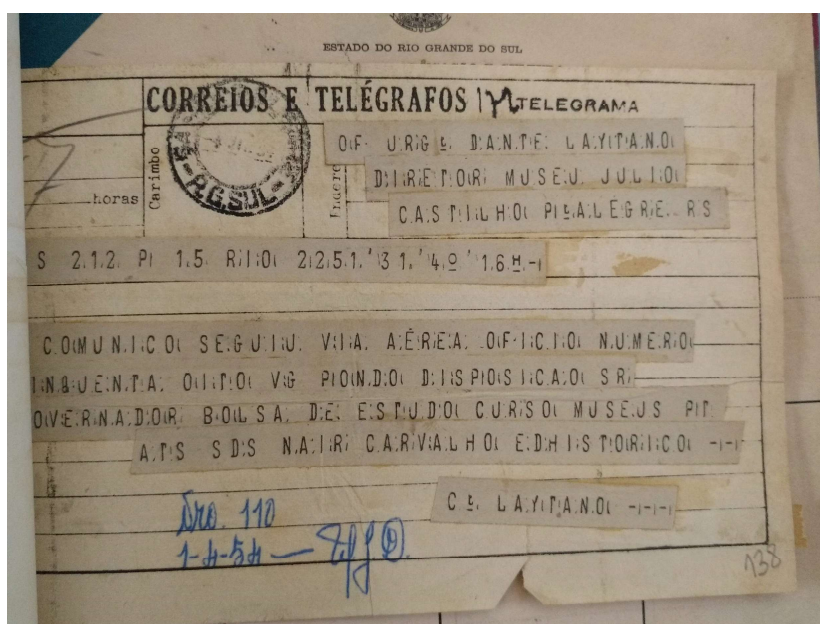 ESTADO DO RIO GRANDE DO SUL
CORREIOS E TELÉGRAFOS TELEGRAMA
OF URGº DANTE LAYTANO
DIRETOR MUSEU JULIO
horas Carimbo CASTILHO PºALEGRE RS
R.G.SUL
S 212 P 15 RIO 2251 31 4º 16H -
COMUNICO SEGUIU VIA AÉREA OFICIO NUMERO
INQUENTA OITO VG PONDO DISPOSICAO SR
OVERNADOR BOLSA DE ESTUDO CURSO MUSEUS PT
ATS SDS NAIR CARVALHO EDHISTORICO ---
Cº LAYTANO ----
Pro. 110
1-4-54
138